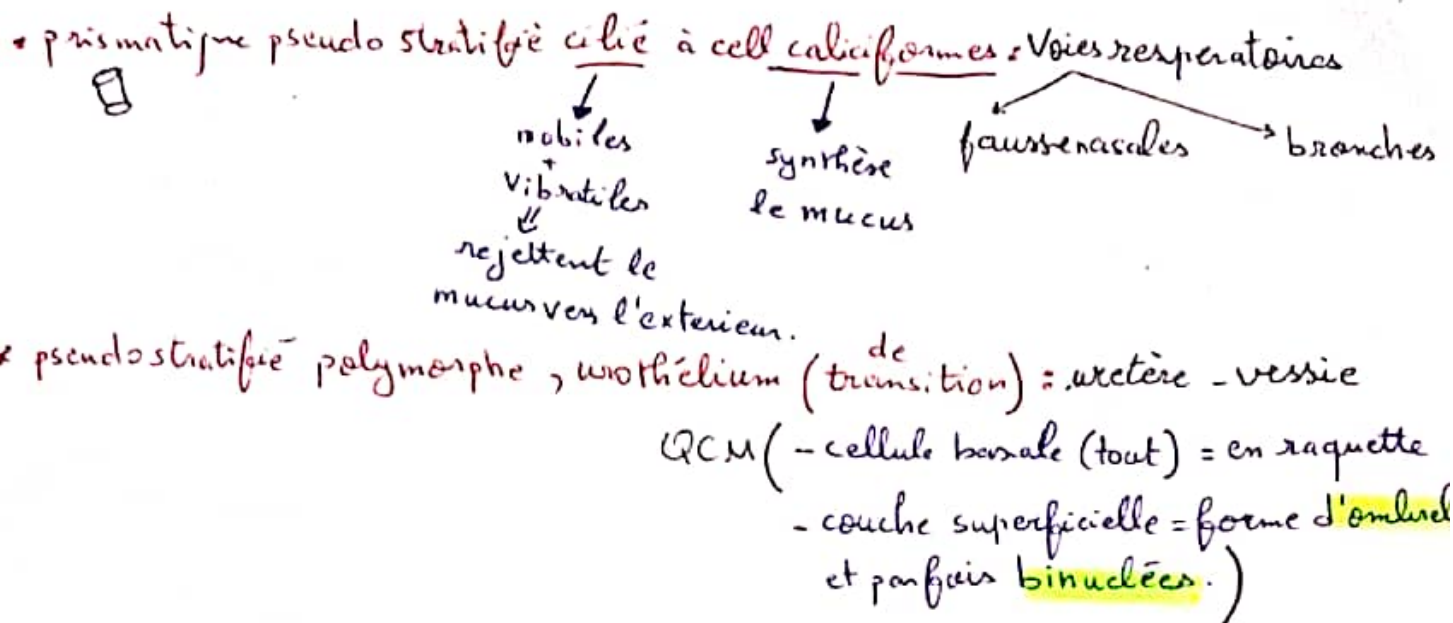 • prismatique pseudo stratifié cilié à cell caliciformes : Voies resperatoires
mobiles
+
vibratiles
rejettent le
mucus vers l'exterieur.
synthèse
le mucus
fausse nasales
bronches
* pseudostratifié polymorphe, urothélium (de transition) : uretère - vessie
QCM ( - cellule basale (tout) = en raquette
- couche superficielle = forme d'ombrel
et parfois binuclées. )